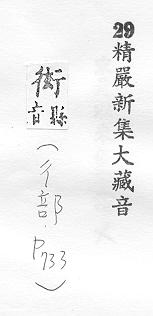 29精嚴新集大藏音
衒
音縣
(彳部.P733)